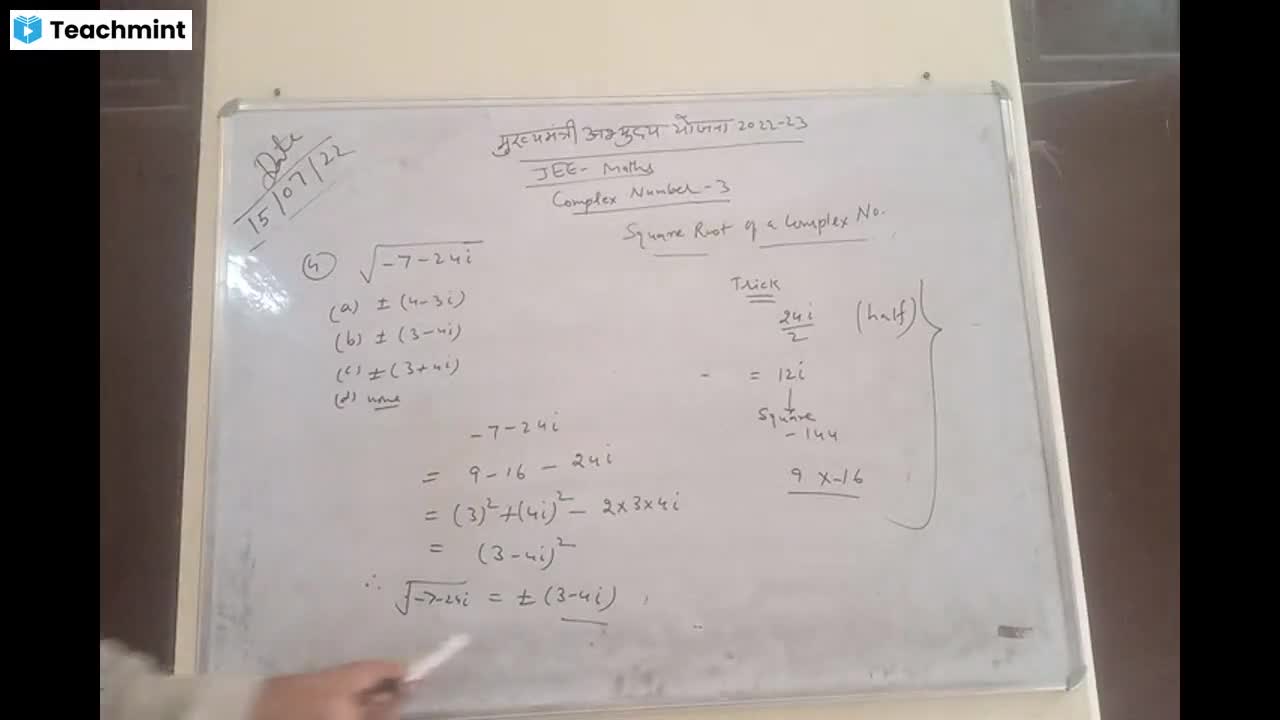 Teachmint
Date
15/07/22
मुख्यमंत्री अभ्युदय योजना 2022-23
JEE- Maths
Complex Number-3
Square Root of a Complex No.
(4) √-7-24i
(a) ± (4-3i)
(b) ± (3-4i)
(c) ± (3+4i)
(d) none
-7-24i
= 9-16 - 24i
= (3)² + (4i)² - 2×3×4i
= (3-4i)²
∴ √-7-24i = ± (3-4i)
Trick
24i/2 (half)
- = 12i
↓
Square
- 144
9 x-16